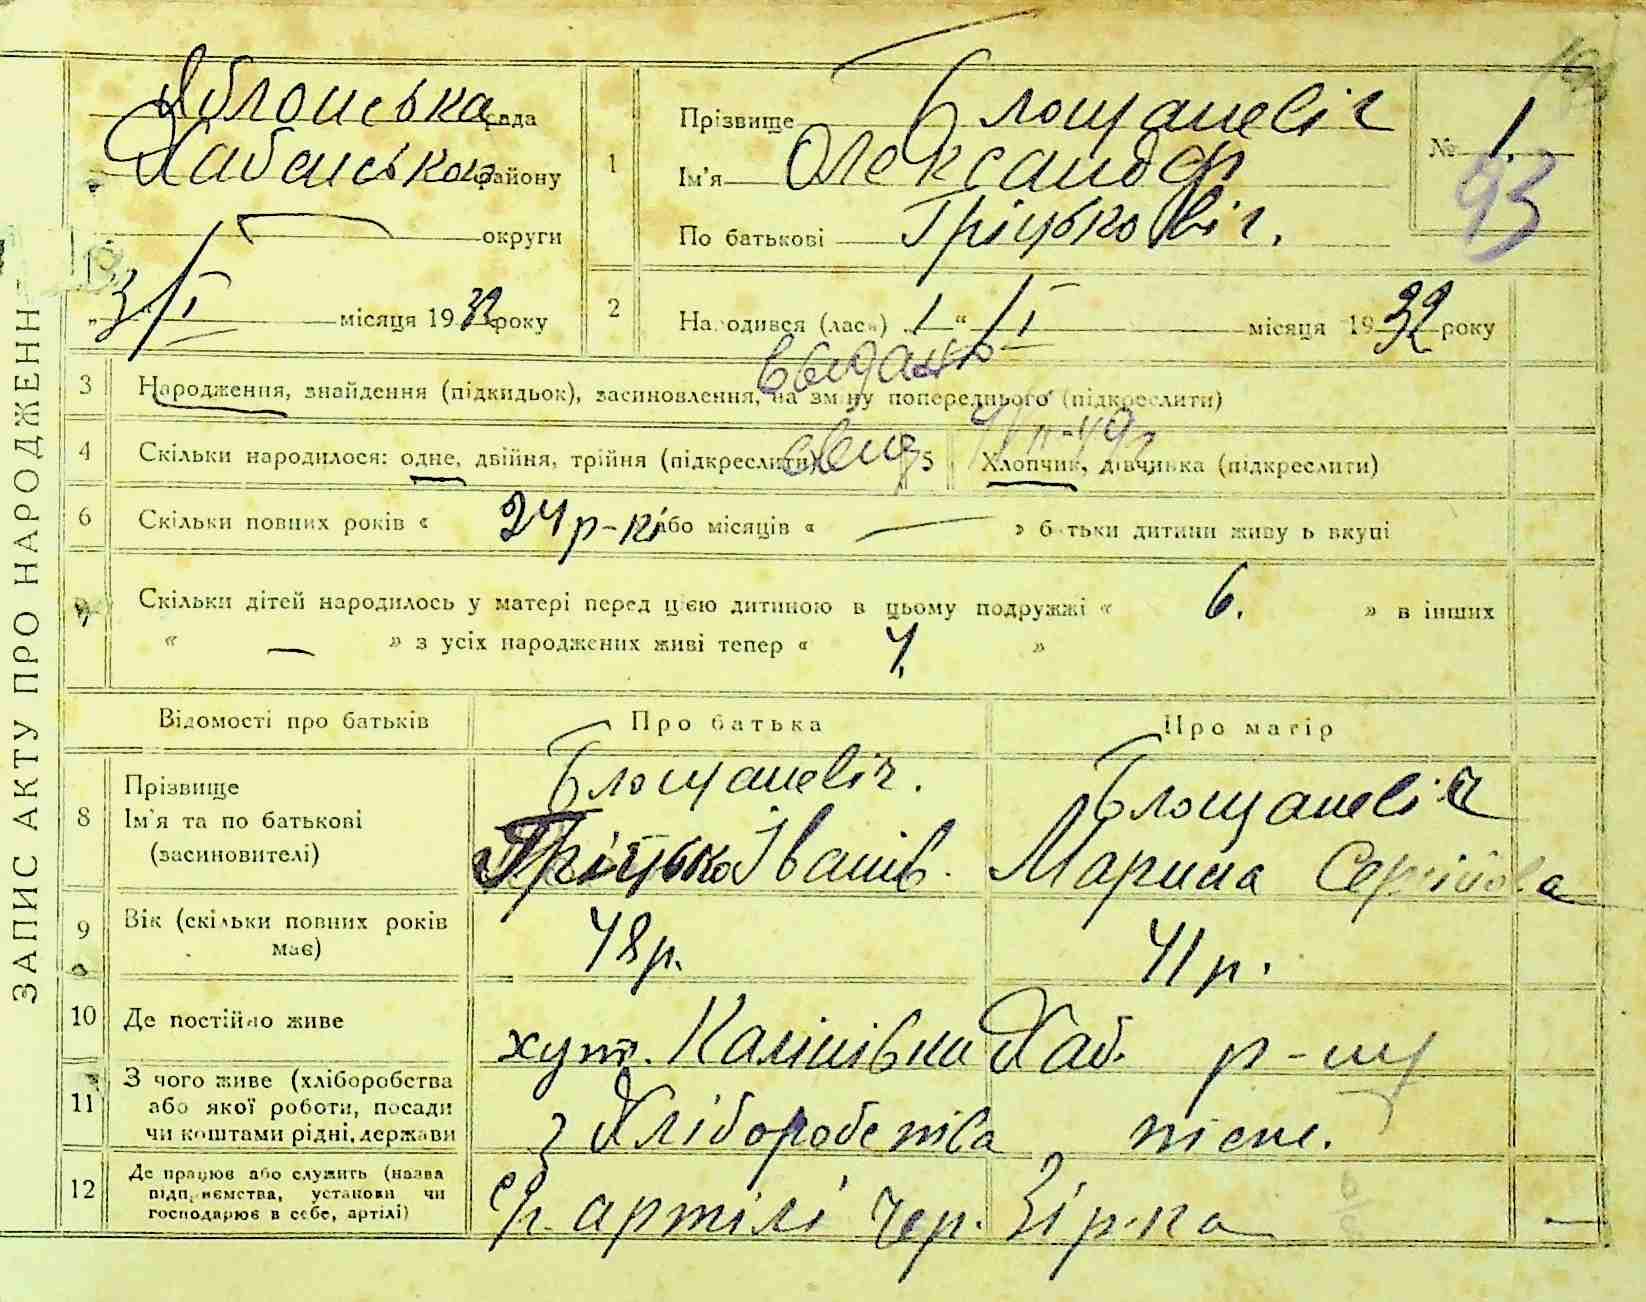 ЗАПИС АКТУ ПРО НАРОДЖЕНН
Яблонська рада
Хабенського району
округи
3/I місяця 1932 року
1
Прізвище Блощаневіч
Ім'я Олександр
По батькові Гріцькови́ч.
№ 1.
93
2
Народився (лась) 1 " /I місяця 1932 року
выдано
3 Народження, знайдення (підкидьок), засиновлення, на зміну попереднього (підкреслити)
4 Скільки народилося: одне, двійня, трійня (підкреслити)
свид
5 Хлопчик, дівчинка (підкреслити)
6 Скільки повних років « 24 р-кі або місяців « — » батьки дитини живуть вкупі
7 Скільки дітей народилось у матері перед цією дитиною в цьому подружжі « 6. » в інших
« — » з усіх народжених живі тепер « 4. »
Відомості про батьків Про батька Про матір
8 Прізвище
Ім'я та по батькові
(засиновителі)
Блощаневіч.
Гріцько Іванів.
Блощаневіч
Марина Сергійова
9 Вік (скільки повних років
має)
48 р.
41 р.
10 Де постійно живе
хут. Калінівки Хаб. р-ну
11 З чого живе (хліборобства
або якої роботи, посади
чи коштами рідні, держави
з Хліборобства теж.
12 Де працює або служить (назва
підприємства, установи чи
господарює в себе, артілі)
артілі Чер. Зірка
—